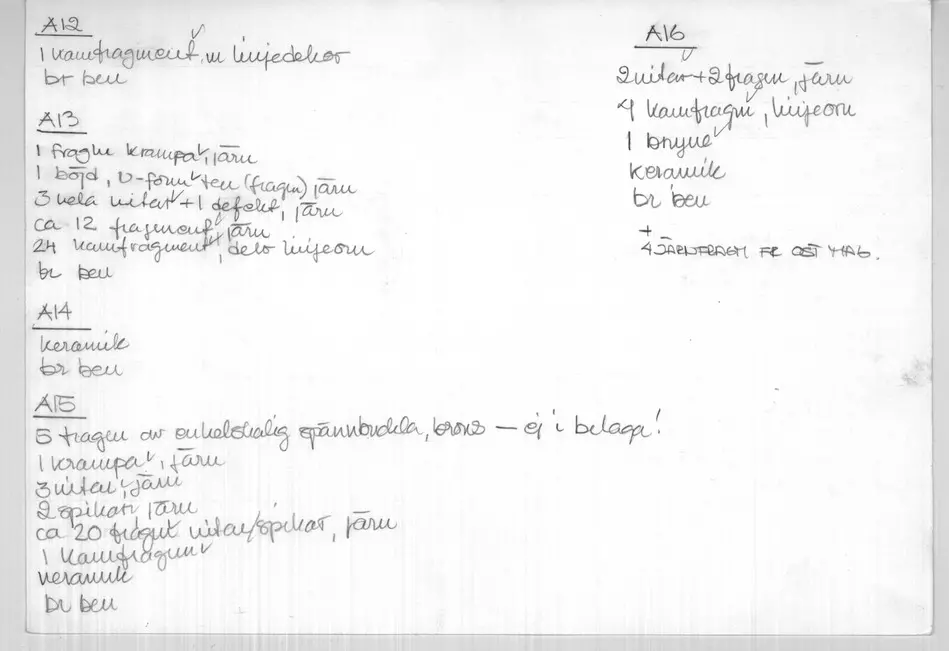 A12
1 kamfragment, m linjedekor
br ben
A13
1 fragm krampa, järn
1 böjd, U-form ten (fragm) järn
3 hela nitar + 1 defekt, järn
ca 12 fragment, järn
24 kamfragment, delv linjeorn
br ben
A14
keramik
br ben
A15
5 fragm av enkelskalig spännbuckla, brons — ej i belaga!
1 krampa, järn
3 nitar, järn
2 spikar, järn
ca 20 fragm nitar/spikar, järn
1 kamfragm
keramik
br ben
A16
2 nitar + 2 fragm, järn
4 kamfragm, linjeorn
1 bryne
keramik
br ben
+
4 JÄRNFRAGM FR